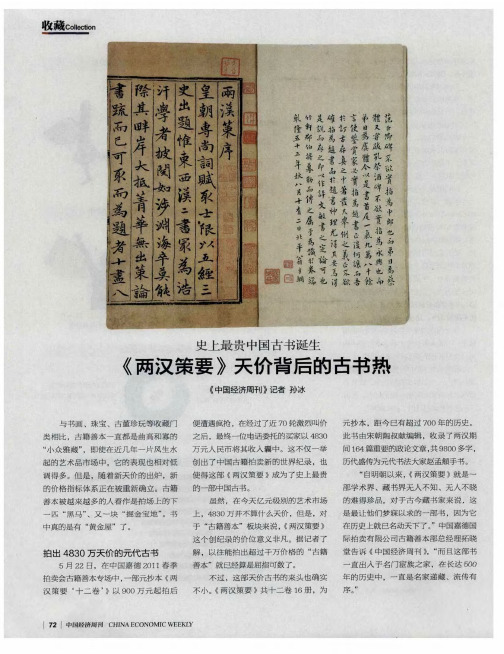 收藏Collection
兩漢策序
皇朝專尚詞賦取士限以五經三
史出題惟東西漢二書最為浩
汗學者披閱如涉淵海卒莫能
際其畔岸大抵菁華無出策論
書疏而已可取而為題者十盡八
史上最贵中国古书诞生
《两汉策要》天价背后的古书热
《中国经济周刊》记者 孙冰
与书画、珠宝、古董珍玩等收藏门
类相比，古籍善本一直都是曲高和寡的
“小众雅藏”，即使在近几年一片风生水
起的艺术品市场中，它的表现也相对低
调得多。但是，随着新天价的出炉，新
的价格指标体系正在被重新确立。古籍
善本被越来越多的人看作是拍场上的下
一匹“黑马”、又一块“掘金宝地”。书
中真的是有“黄金屋”了。
拍出 4830 万天价的元代古书
5 月 22 日，在中国嘉德 2011 春季
拍卖会古籍善本专场中，一部元抄本《两
汉策要 ‘十二卷’》以 900 万元起拍后
便遭遇疯抢，在经过了近 70 轮激烈叫价
之后，最终一位电话委托的买家以 4830
万元人民币将其收入囊中。这不仅一举
创出了中国古籍拍卖新的世界纪录，也
使得这部《两汉策要》成为了史上最贵
的一部中国古书。
虽然，在今天亿元级别的艺术市场
上，4830 万并不算什么天价，但是，对
于“古籍善本”板块来说，《两汉策要》
这个创纪录的价位意义非凡。据记者了
解，以往能拍出超过千万价格的“古籍
善本”就已经算是屈指可数了。
不过，这部天价古书的来头也确实
不小。《两汉策要》共十二卷 16 册，为
元抄本，距今已有超过 700 年的历史，
此书由宋朝陶叔献编辑，收录了两汉期
间 164 篇重要的政论文章,共 9800 多字，
历代盛传为元代书法大家赵孟頫手书。
“自明朝以来，《两汉策要》就是一
部学术界、藏书界无人不知、无人不晓
的难得珍品，对于古今藏书家来说，这
是最让他们梦寐以求的一部书，因为它
在历史上就已名动天下了。”中国嘉德国
际拍卖有限公司古籍善本部总经理拓晓
堂告诉《中国经济周刊》，“而且这部书
一直出入于名门宦族之家，在长达 500
年的历史中，一直是名家递藏、流传有
序。”
72 | 中国经济周刊 CHINA ECONOMIC WEEKLY